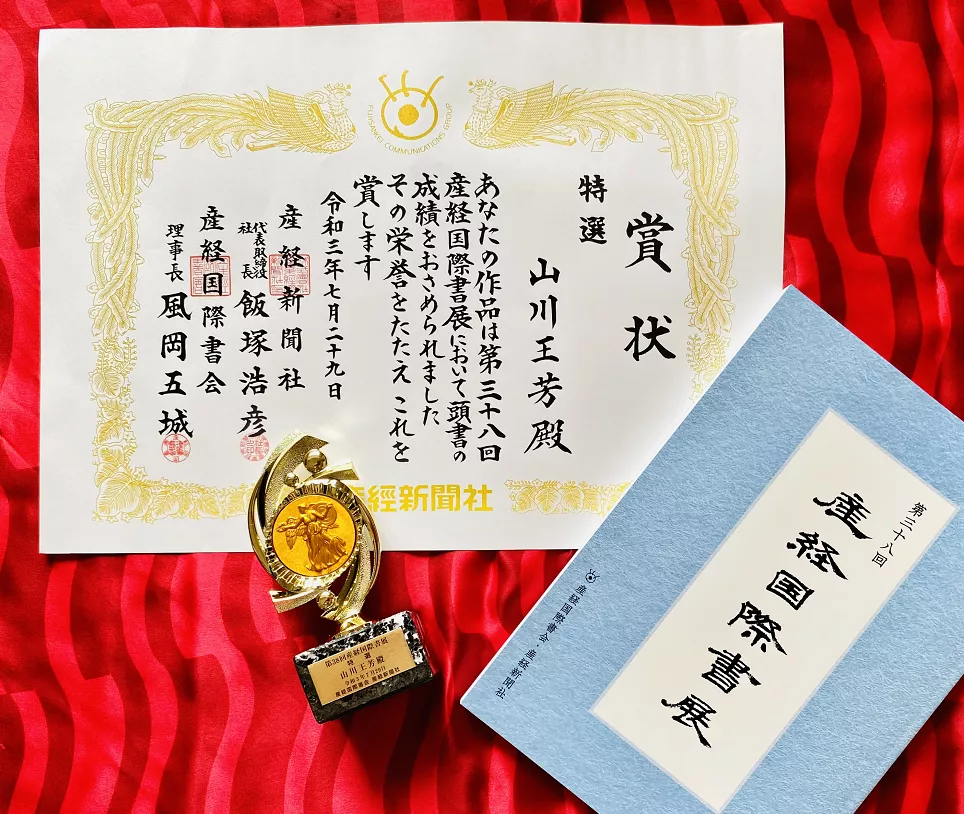 FUJISANKEI COMMUNICATIONS GROUP
賞状
特選
山川王芳殿
あなたの作品は第三十八回
産経国際書展において頭書の
成績をおさめられました
その栄誉をたたえこれを
賞します
令和三年七月二十九日
産経新聞社
代表取締役
社長
飯塚浩彦
産経国際書会
理事長 風岡五城
産經新聞社
第38回産経国際書展
特選
山川王芳殿
令和3年7月29日
産経国際書会 産経新聞社
第三十八回
産経国際書展
産経国際書会・産経新聞社